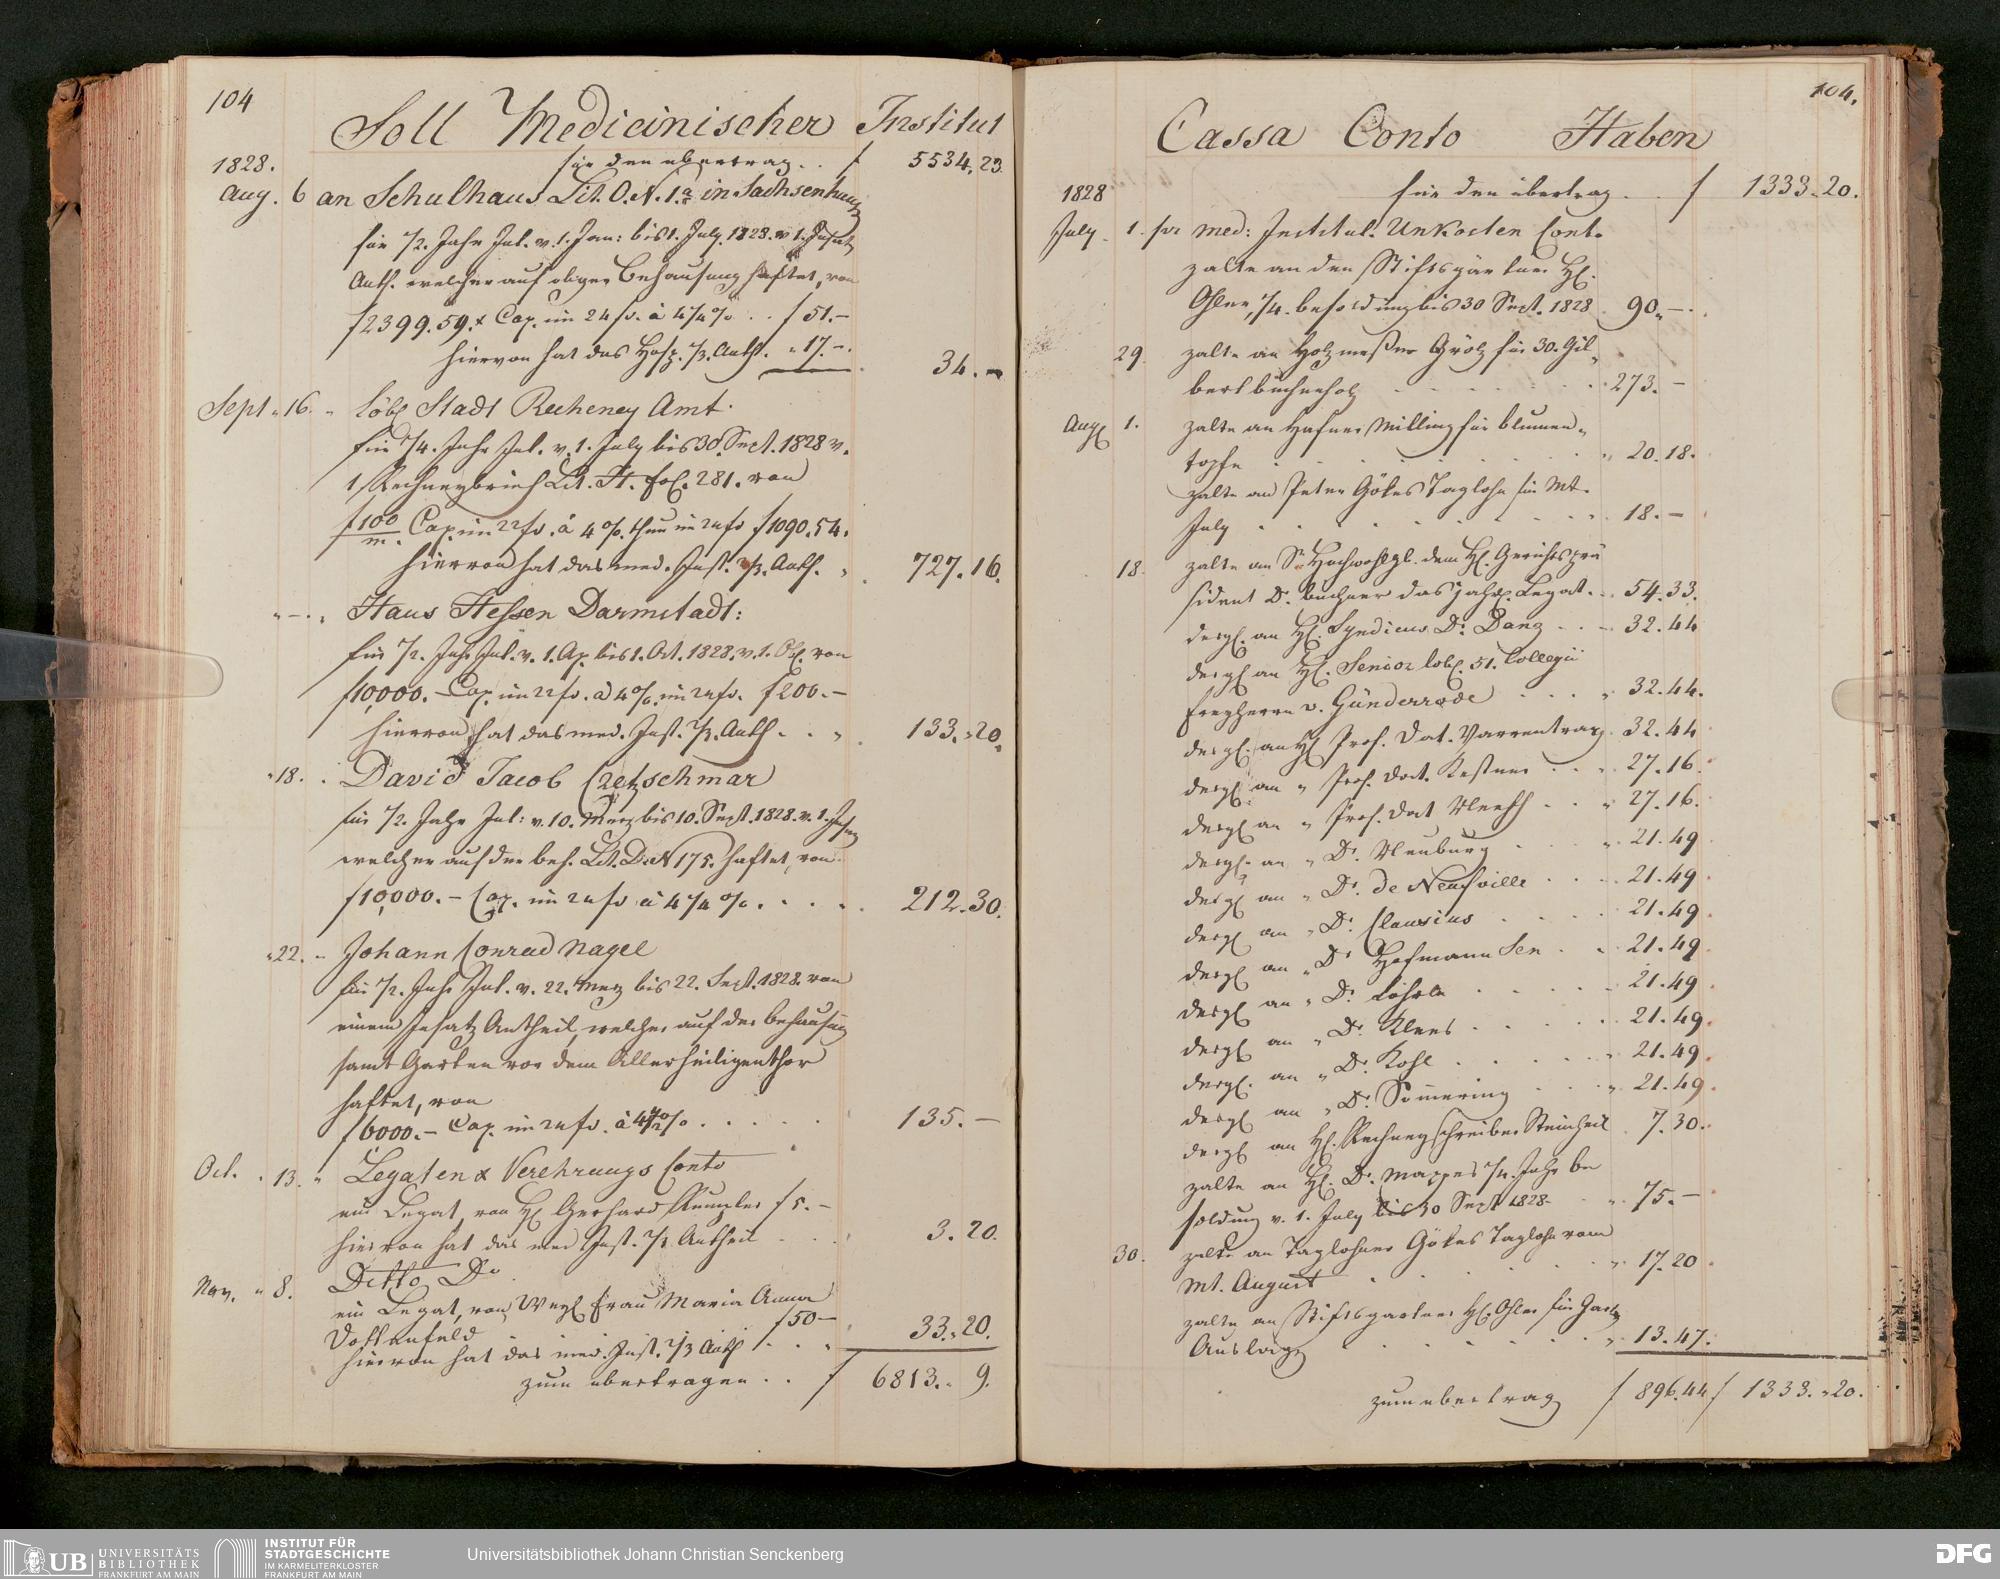 104
Soll Medicinischer Institut
1828. für den übertrag . . f 5534.23.
Aug. 6 an Schulhaus Lit. O. N. 1.a in Sachsenhausen
für 1/2. Jahr Int. v. 1. Jan: bis 1. July 1828. v. 1. Insatz
Anth. welcher auf obiger Behausung haftet, von
f 2399.59.x Cap. im 24 fs. à 4 1/4 % . . f 51.–
hiervon hat das Hosp. 1/3. Anth. „ 17.–. 34.–
Sept „ 16. „ löbl Stadt Recheney Amt.
für 1/4. Jahr Int. v. 1. July bis 30. Sept. 1828 v.
1 Rechneybrief Lit. H. fol. 281. von
f 100/m. Cap. im 22 fs. à 4 %. thun im 24 fs f 1090.54.
hiervon hat das med. Inst. 2/3. Anth. „ 727.16.
„ – „ Haus Hessen Darmstadt:
für 1/2. Jahr Int. v. 1. Ap. bis 1. Oct. 1828. v. 1. Obl. von
f 10,000.– Cap. im 22 fs. à 4 %. im 24 fs. f 200.–
hiervon hat das med. Inst. 2/3. Anth . . „ 133.„20.
„ 18. . David Jacob Cretzschmar
für 1/2. Jahr Int: v. 10. Merz bis 10. Sept. 1828. v. 1. Insatz
welcher auf der beh. Lit. D. N 175. haftet, von
f 10,000.– Cap. im 24 fs à 4 1/4 %. . . . . 212.30.
„ 22. „ Johann Conrad Nagel
für 1/2. Jahr Int. v. 22. Merz bis 22. Sept. 1828. von
einem Insatz Antheil, welcher auf der behausung
samt Garten vor dem Allerheiligenthor
haftet, von
f 6000.– Cap. im 24 fs. à 4 1/2 % . . . . . 135.–
Oct. . 13. „ Legaten & Verehrungs Conto
ein Legat, von Hl Gerhard Rumpler f 5.–
hiervon hat das med Inst. 2/3 Antheil . . . 3.20.
Nov. „ 8. Ditto Do
ein Legat, von Weyl Frau Maria Anna
Dottenfeld f 50–
hiervon hat das med. Inst. 2/3 Anth . . . 33.„20.
zum übertragen . . f 6813.„ 9.
104.
Cassa Conto Haben
1828 für den übertrag . . f 1333.20.
July . 1. per med: Institut. Unkosten Conto
zalte an den Stiftsgärtner Hl.
Ohler, 1/4. besoldung bis 30 Sept. 1828 . 90.–.
29. zalte an Holzmesser Grölz für 30. Gil-
bert büchenholz . . . . . . . 273.–
Augl 1. zalte an Hafner Milling für blumen-
töpfe . . . . . . „ 20.18.
zalte an Peter Gökes Taglohn für Mt.
July . . . . . . . . „ 18.–
18. zalte an Sr Hochwohlgl. dem Hl. Gerichtsprä
sident Dr. buchner das jährl. Legat . . 54.33.
desgl. an Hl. Syndicus Dr. Danz . . – 32.44
desgl an Hl. Senior löbl. 51. Collegii
Freyherrn v. Günderrode . . . „ 32.44.
desgl. an Hl Prof. Dat. Varrentrap . 32.44
desgl. an „ Prof. Doct. Kestner . . „ 27.16.
desgl an „ Prof. Doct Neeff . . „ 27.16.
desgl. an „ Dr. Neuburg . . . „ 21.49
desgl an „ Dr. de Neufville . . . . 21.49.
desgl an „ Dr. Clausius . . . . 21.49.
desgl an „ Dr. Hofmann Sen . . 21.49.
desgl an „ Dr. Löhrle . . . . 21.49
desgl an „ Dr. Klees . . . . . 21.49.
desgl. an „ Dr. Kohl . . . . . „ 21.49.
desgl an „ Dr. Sömmering . . . „ 21.49.
desgl an Hl. Rechneyschreiber Steinheil . 7.30.
zalte an Hl. Dr. Mappes 1/4. Jahr be
soldung v. 1. July bis 30 Sept 1828 . „ 75.–
30. zalte an Taglöhner Gökes Taglohn vom
Mt. August . . . . . . „ 17.20.
zalte an Stiftsgärtner Hl. Ohler für Garten
Auslage . . . . . . „ 13.47.
zum übertrag f 896.44 f 1333.„20.
UB UNIVERSITÄTS
BIBLIOTHEK
FRANKFURT AM MAIN
INSTITUT FÜR
STADTGESCHICHTE
IM KARMELITERKLOSTER
FRANKFURT AM MAIN
Universitätsbibliothek Johann Christian Senckenberg
DFG